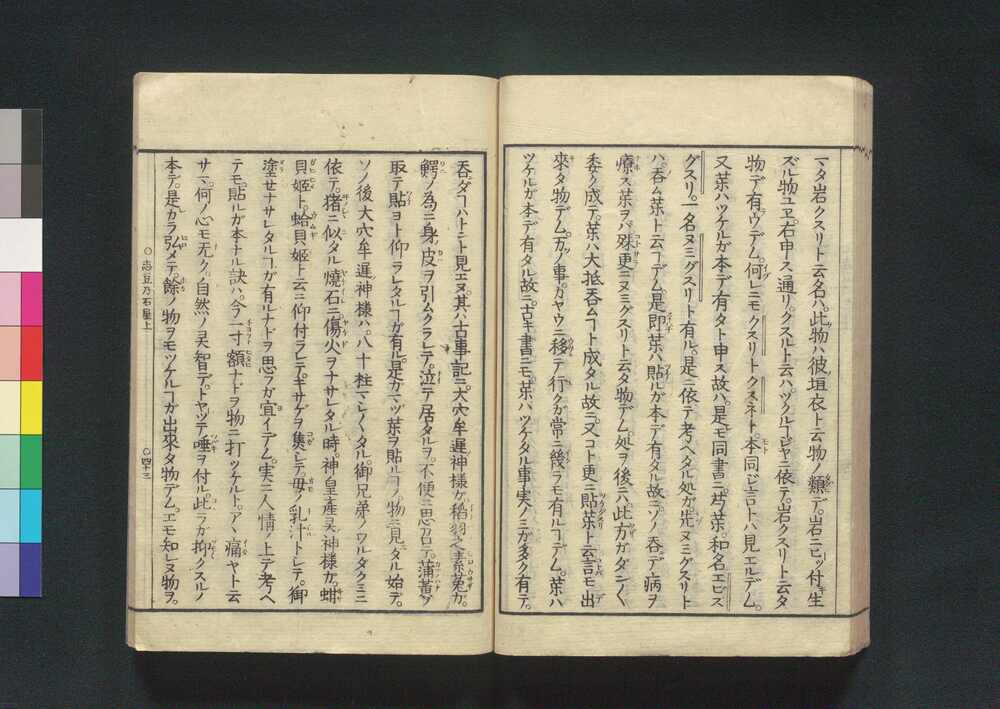 マタ岩クスリト云名ハ。此物ハ彼垣衣ト云物ノ類デ。岩ニヒッ付キ生
ズル物ユヱ。右申ス通リ。クスルト云ハ。ツクルヿヂヤニ依テ。岩クスリト云タ
物デ有ウデム。何レニモクスリトクスネト。本同ジ言トハ見エルデム。
又薬ハツケルガ本デ有タト申ス故ハ。是モ同書ニ芍薬。和名エビス
グスリ。一名ヌミグスリト有ル。是ニ依テ考ヘタル処ガ。先ヌミグスリト
ハ。呑ム薬ト云ヿデム。是即薬ハ貼ルガ本デ有タル故ニ。ソノ呑デ病ヲ
療ス薬ヲバ殊更ニヌミグスリト云タ物デム。処ヲ後ニハ此方ガダン〳〵
委ク成テ。薬ハ大抵呑ムヿト成タル故ニ。又コト更ニ貼薬ト云言モ出
來タ物デム。カノ事。カヤウニ移テ行クガ常ニ幾ラモ有ルヿデム。薬ハ
ツケルガ本デ有タル故ニ。古キ書ニモ。薬ハツケタル事実ノミガ多ク有テ。
呑ダヿハトント見エヌ。其ハ古事記ニ。大穴牟遲神様ガ。稻羽之素菟ガ。
鰐ノ為ニ身ノ皮ヲ引ムクラレテ。泣テ居タルヲ。不便ニ思召テ。蒲黃ヲ
取テ貼ヨト仰ラレタルヿガ有ル。是ガマヅ薬ヲ貼ルヿノ物ニ見ダル始デ。
ソノ後大穴牟遲神様ハ。八十柱マシ〳〵タル。御兄弟ノワルダクミニ
依テ。猪ニ似タル燒石ニ傷火ヲナサレタル時。神皇產灵神様ガ。蚶
貝姬ト。蛤貝姬ト云ニ仰付ラレテ。キサゲヲ集シテ。母ノ乳汁トシテ。御
塗セナサレタルヿガ有ルナドヲ思フガ宜イデム。実ニ人情ノ上デ考ヘ
テモ。貼ルガ本ナル訣ハ。今一寸額ナドヲ物ニ打ツケルト。アヽ痛ヤト云
サマ。何ノ心モ无ク。自然ノ灵智デ。トヤツテ唾ヲ付ル。此ラガ抑クスルノ
本デ。是カラ弘メテ。餘ノ物ヲモツケルヿガ出來タ物デム。エモ知レヌ物ヲ。
○志豆乃石屋上
○四十三